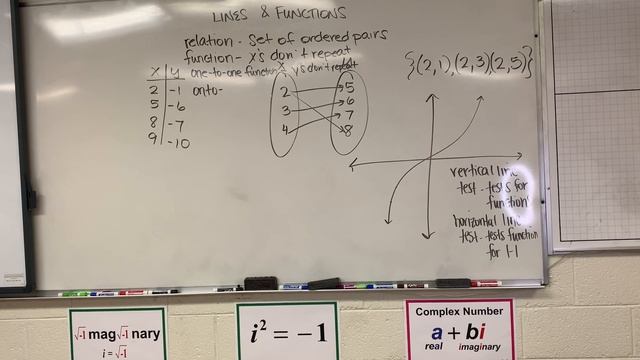 LINES & FUNCTIONS
relation - set of ordered pairs
function - x's don't repeat
one-to-one function y's don't repeat
onto-
X Y
2 -1
5 -6
8 -7
9 -10
2 5
3 6
4 7
8
{(2,1),(2,3)(2,5)}
vertical line
test - tests for
function
horizontal line
test - tests function
for 1-1
√-1 mag √-1 nary
i = √-1
i² = -1
Complex Number
a + bi
real imaginary